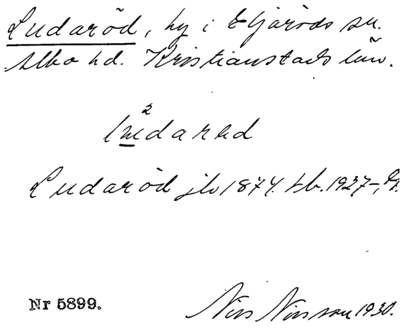 Ludaröd, by i Eljaröds sn.
Albo hd. Kristianstads län.
Ludaröd jb 1874. tb. 1927
Nr 5899.
Nils Nilsson 1930.